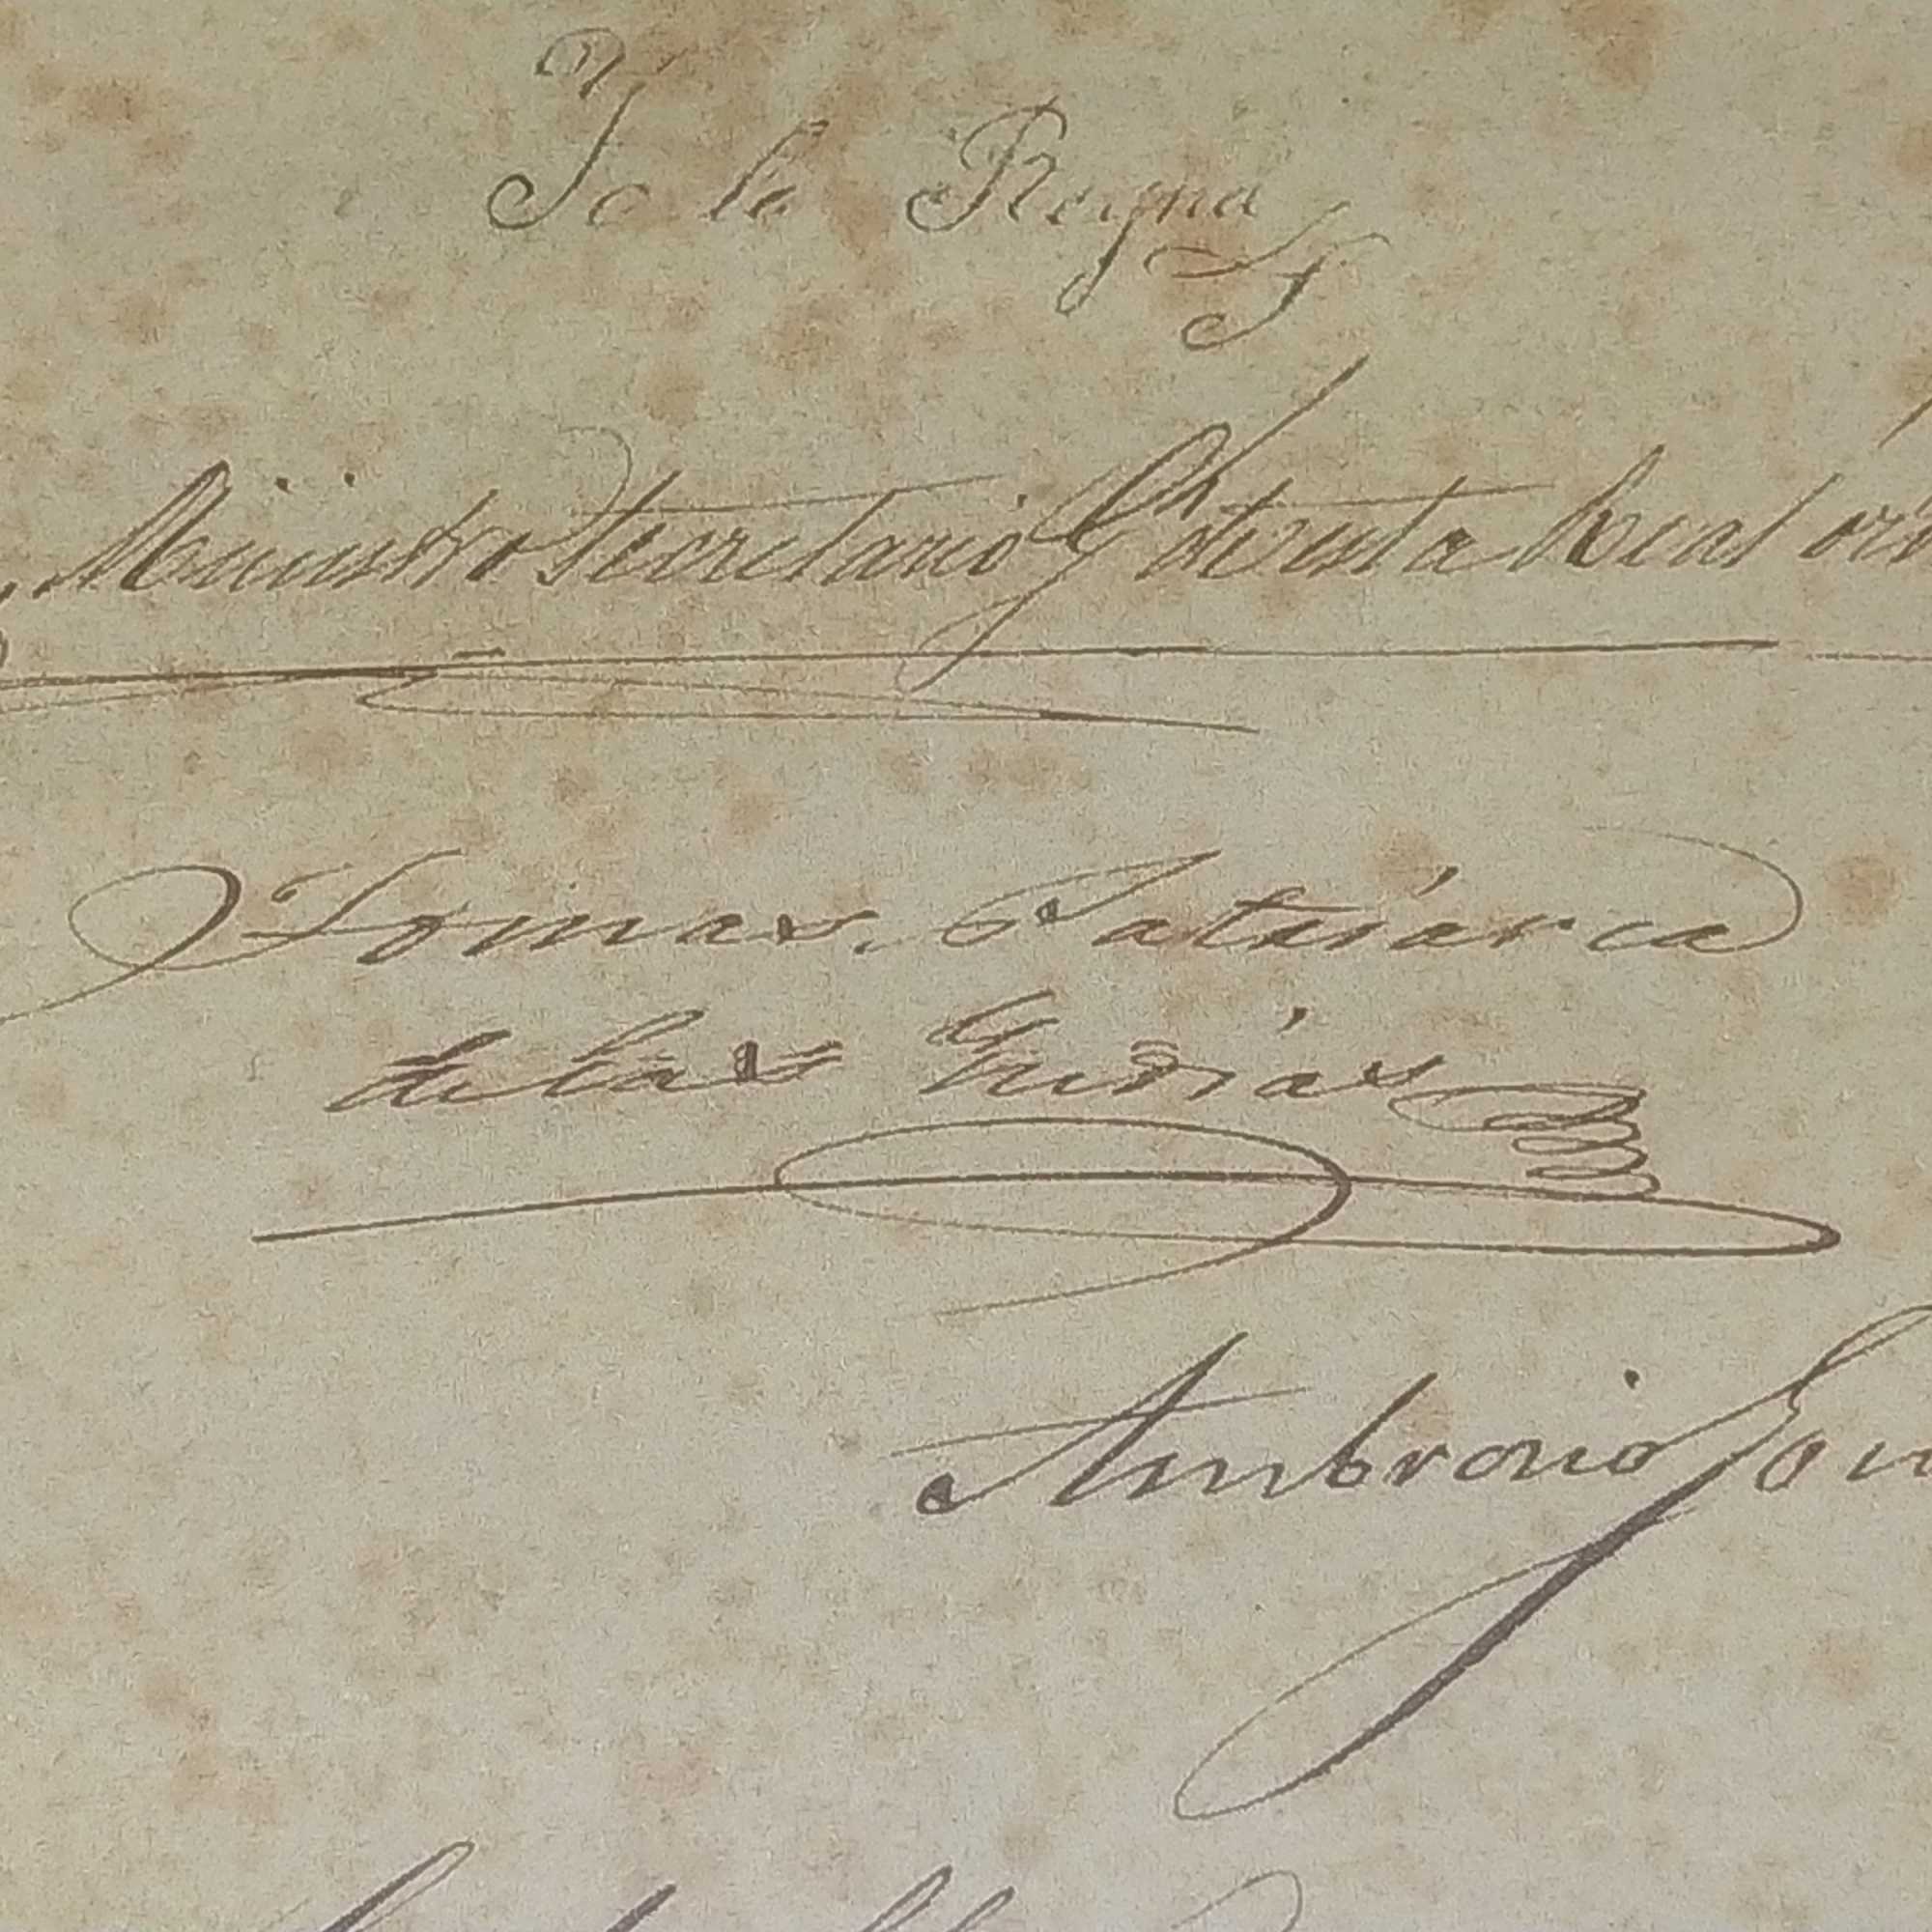 Yo la Reyna
Ministro Secretario de esta Real
Tomas, Patriárca
de las Indias
Ambrosio